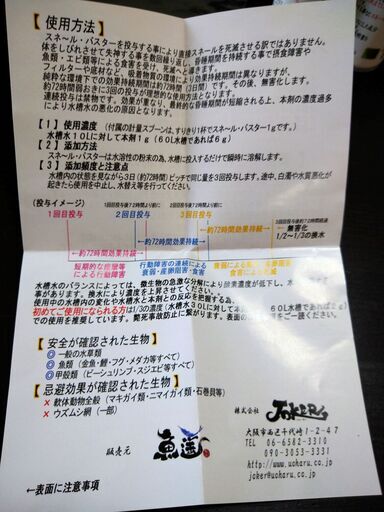 【使用方法】
スネール・バスターを投与する事により直接スネールを死滅させる訳ではありません。
体をしびれさせて失神する事を数回繰り返し、昏睡期間を持続する事で摂食障害や
魚類・エビ類等による食害を受け、死滅へと導きます。
フィルターや底材など、吸着物質の環境により効果持続期間は異なりますが、
純粋な環境下での効果持続期間は約72時間（3日）です。その後、無害化します。
約72時間おきに3回の投与が理想的な使用方法となります。
連続投与は禁物です。効果が重なり、最終的な昏睡期間が短縮される上、本剤の濃度過多
により水槽水の悪化の原因となります。
【1】使用濃度 （付属の計量スプーンは、すりきり1杯でスネ～ル・バスター1gです。）
水槽水10Lに対して本剤1g（60L水槽であれば6g）
【2】添加方法
スネ～ル・バスターは水溶性の粉末の為、水槽に投入するだけで瞬時に溶解します。
【3】添加頻度と注意点
水槽内の状態を見ながら3日（約72時間）ピッチで同じ量を3回投与します。途中、白濁や水質悪化が
起きたら使用を中止し、水替え等を行ってください。
（投与イメージ）
1回目投与
1回目投与後約72時間より前に
2回目投与
2回目投与後約72時間より前に
3回目投与
3回目投与後約72時間経過
無害化
1/2～1/3の換水
約72時間効果持続
約72時間効果持続
約72時間効果持続
短期的な痙攣等
による行動障害
行動障害の連続による
衰弱・産卵阻害・食害
水槽水のバランスによっては、微生物の急激な分解により酸素濃度が低下し、水
事があります。換水により濃度を上昇させてください。
使用中の水槽内の変化や水槽水と本剤との反応を把握する為、
初めてご使用になられる方は1/3の濃度（水槽水30Lに対して本剤
での使用を推奨しています。斃死事故防止に繋がります。表面の
をご一読ください。
【安全が確認された生物】
◎ 一般の水草類
◎ 魚類（金魚・鯉・フグ・メダカ等すべて）
◎ 甲殻類（ビーシュリンプ・スジエビ等すべて）
【忌避効果が確認された生物】
× 軟体動物全般（マキガイ類・ニマイガイ類・石巻貝等）
× ウズムシ綱（一部）
販売元
株式会社 JOKER
大阪市西区千代崎1-2-47
TEL 06-6582-3310
090-3053-3331
http://www.uoharu.co.jp
joker@uoharu.co.jp
←表面に注意事項